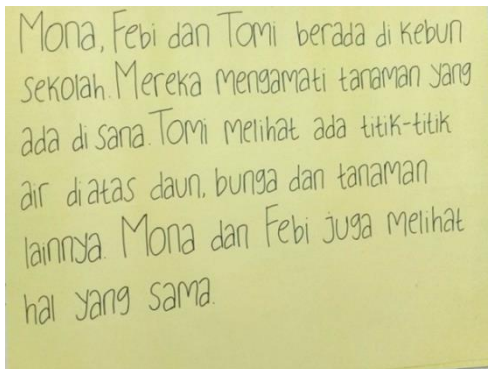 Mona, Febi dan Tomi berada di kebun
sekolah. Mereka mengamati tanaman yang
ada di sana. Tomi melihat ada titik-titik
air diatas daun, bunga dan tanaman
lainnya. Mona dan Febi juga melihat
hal yang sama.